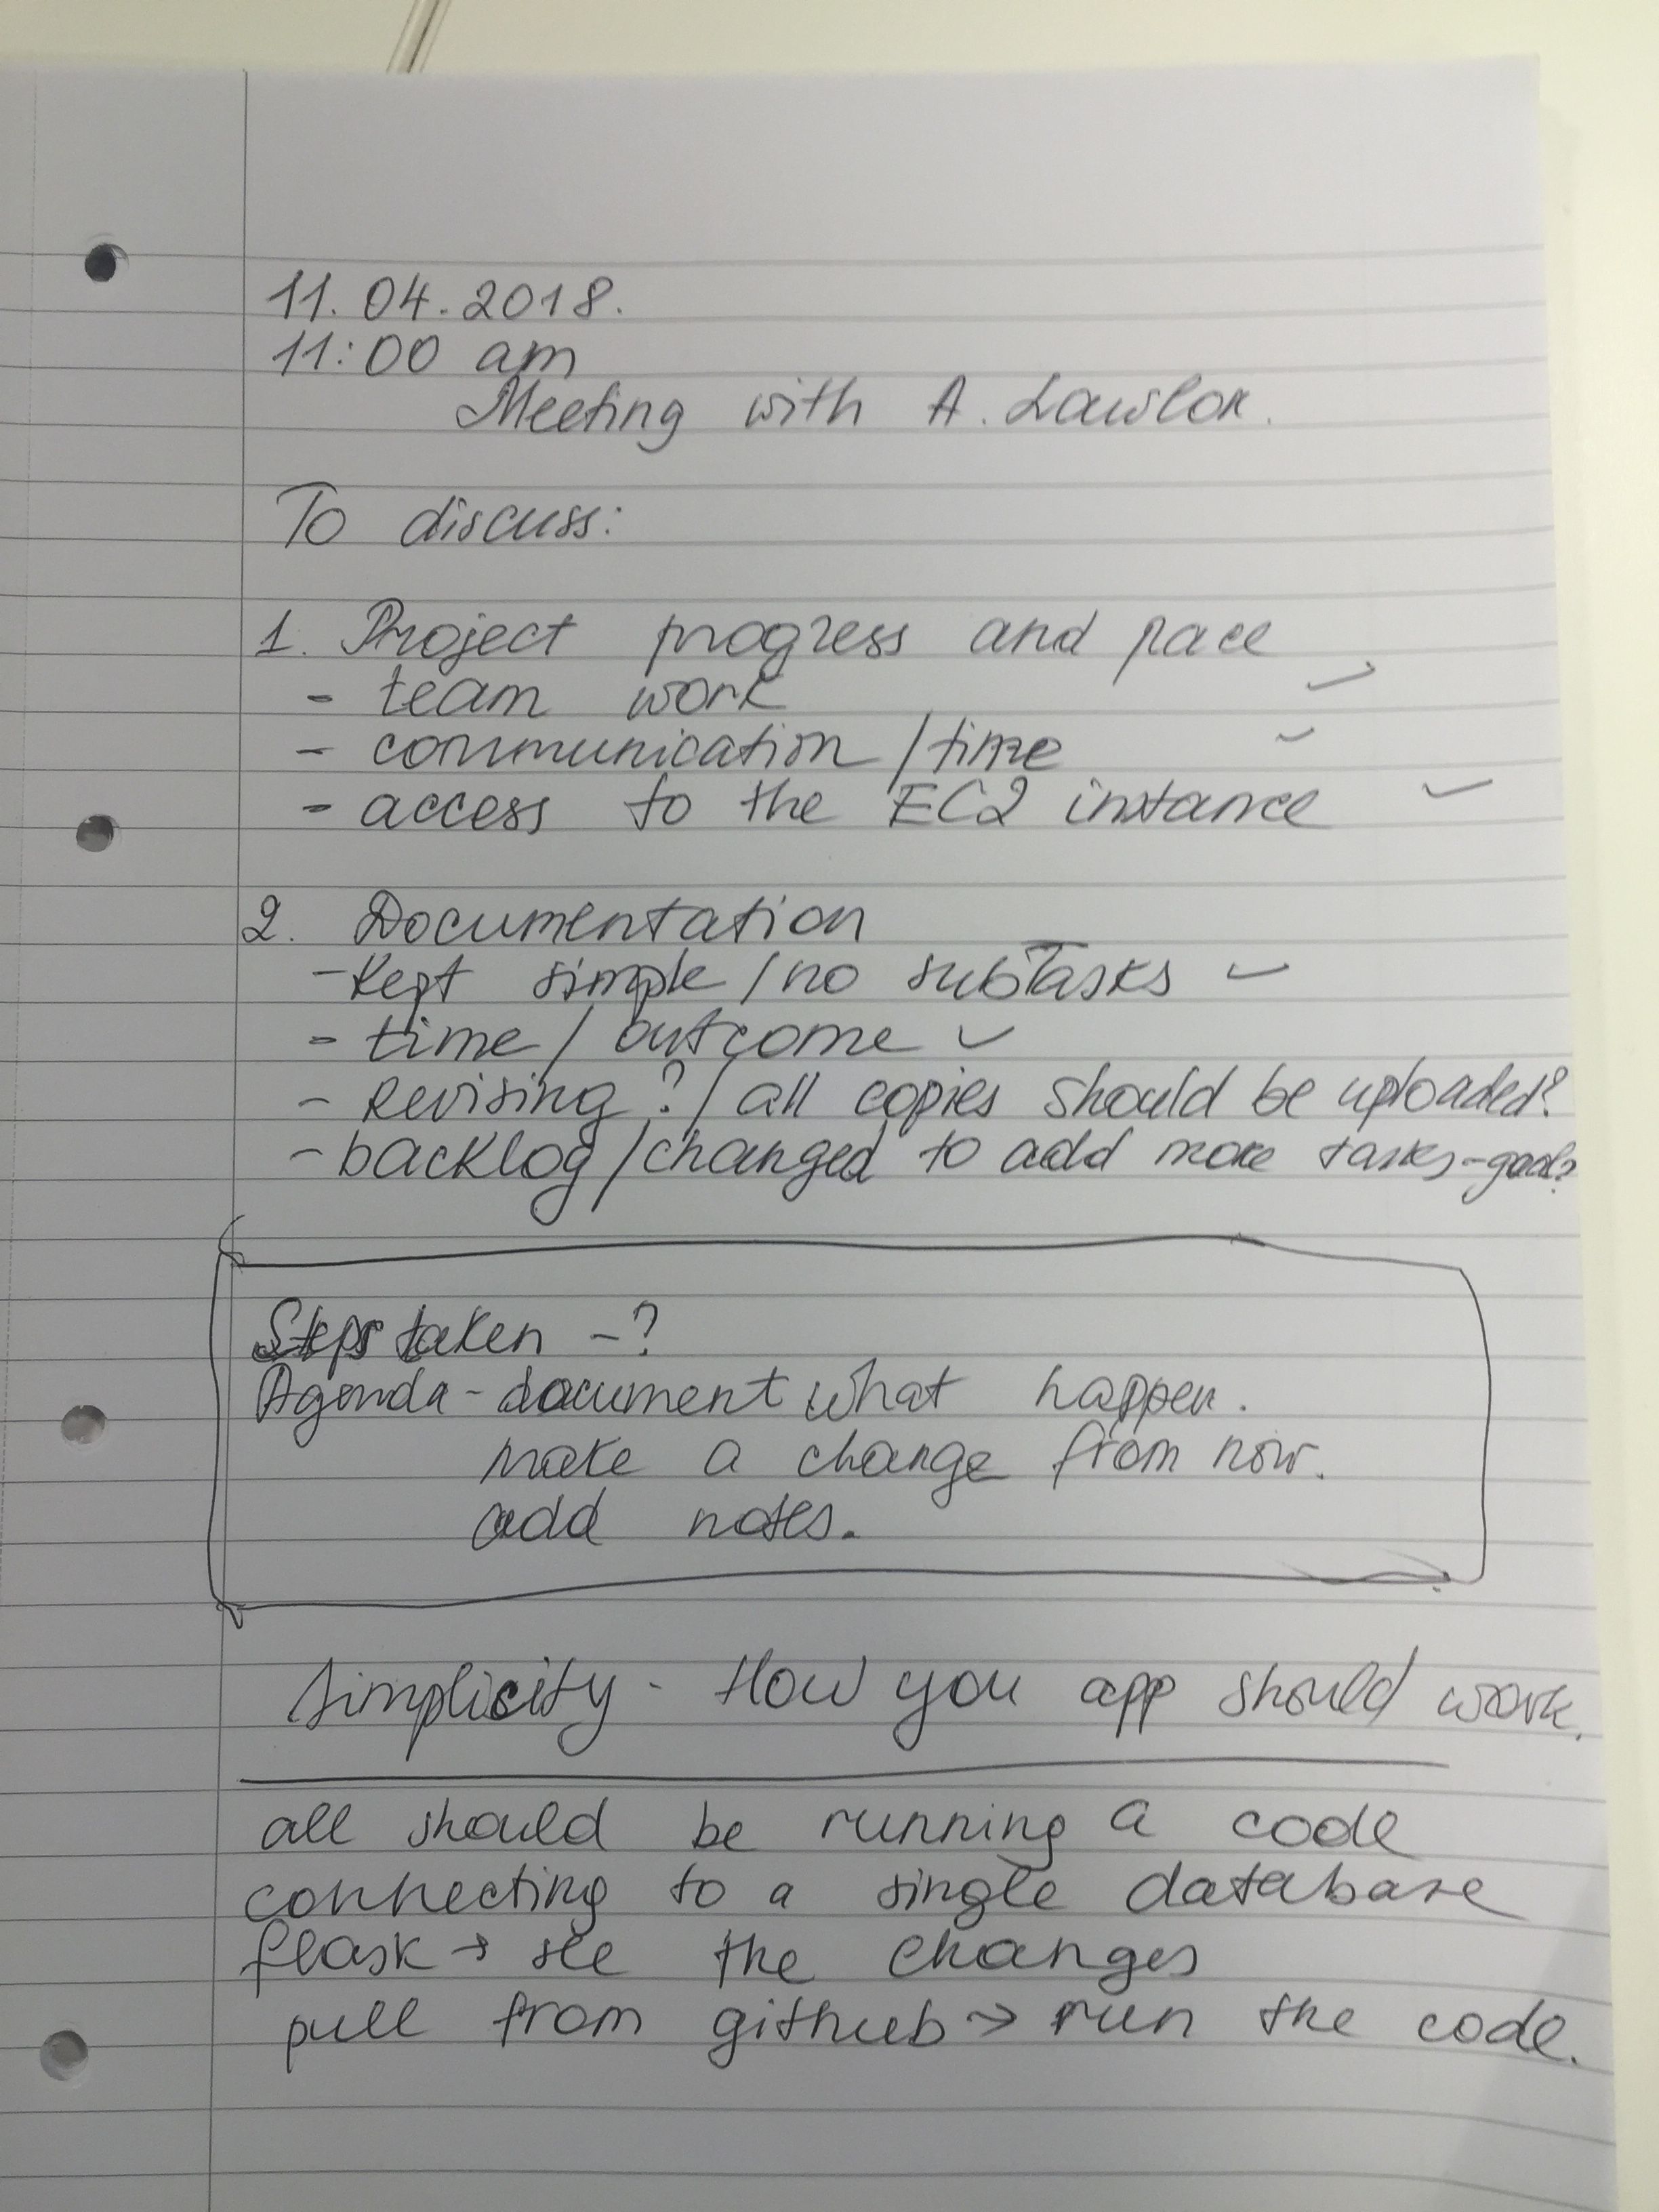 11.04.2018.
11:00 am
Meeting with A. Lawlor.
To discuss:
1. Project progress and pace
- team work ✓
- communication/time ✓
- access to the EC2 instance ✓
2. Documentation
- Kept simple/no subTasks ✓
- time/outcome ✓
- Revising?/all copies should be uploaded?
- backlog/changed to add more tasks-good?
Steps taken -?
Agenda - document what happen.
make a change from now.
add notes.
Simplicity - How you app should work.
all should be running a code
connecting to a single database
flask → see the changes
pull from github → run the code.